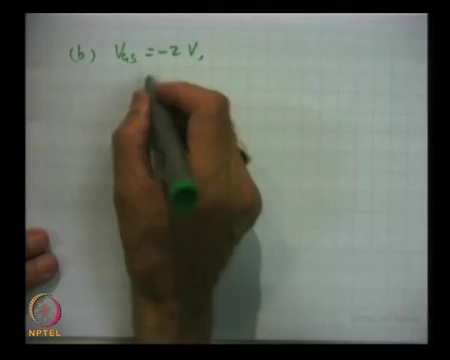 (b) V_GS = -2 V,
NPTEL